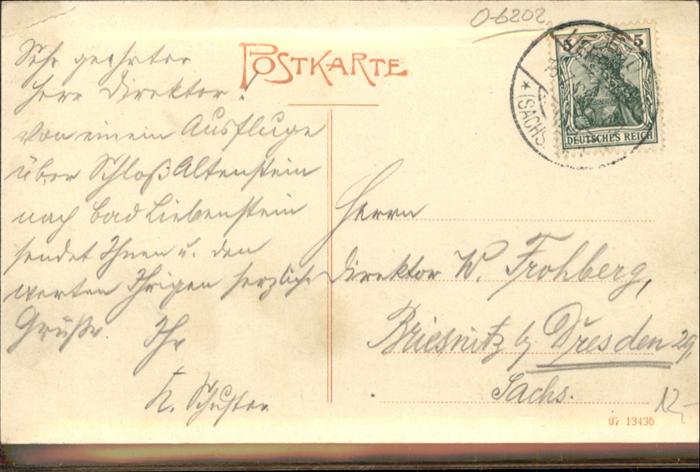 O-6202
POSTKARTE
5 5
DEUTSCHES REICH
(SACHS.
Sehr geehrter
Herr Direktor!
Von einem Ausfluge
über Schloß Altenstein
nach Bad Liebenstein
sendet Ihnen u. den
werten Ihrigen herzliche
Grüße. Ihr
K. Schuster
Herrn
Direktor W. Frohberg,
Briesnitz b/ Dresden 29,
Sachs.
12,-
07 13436